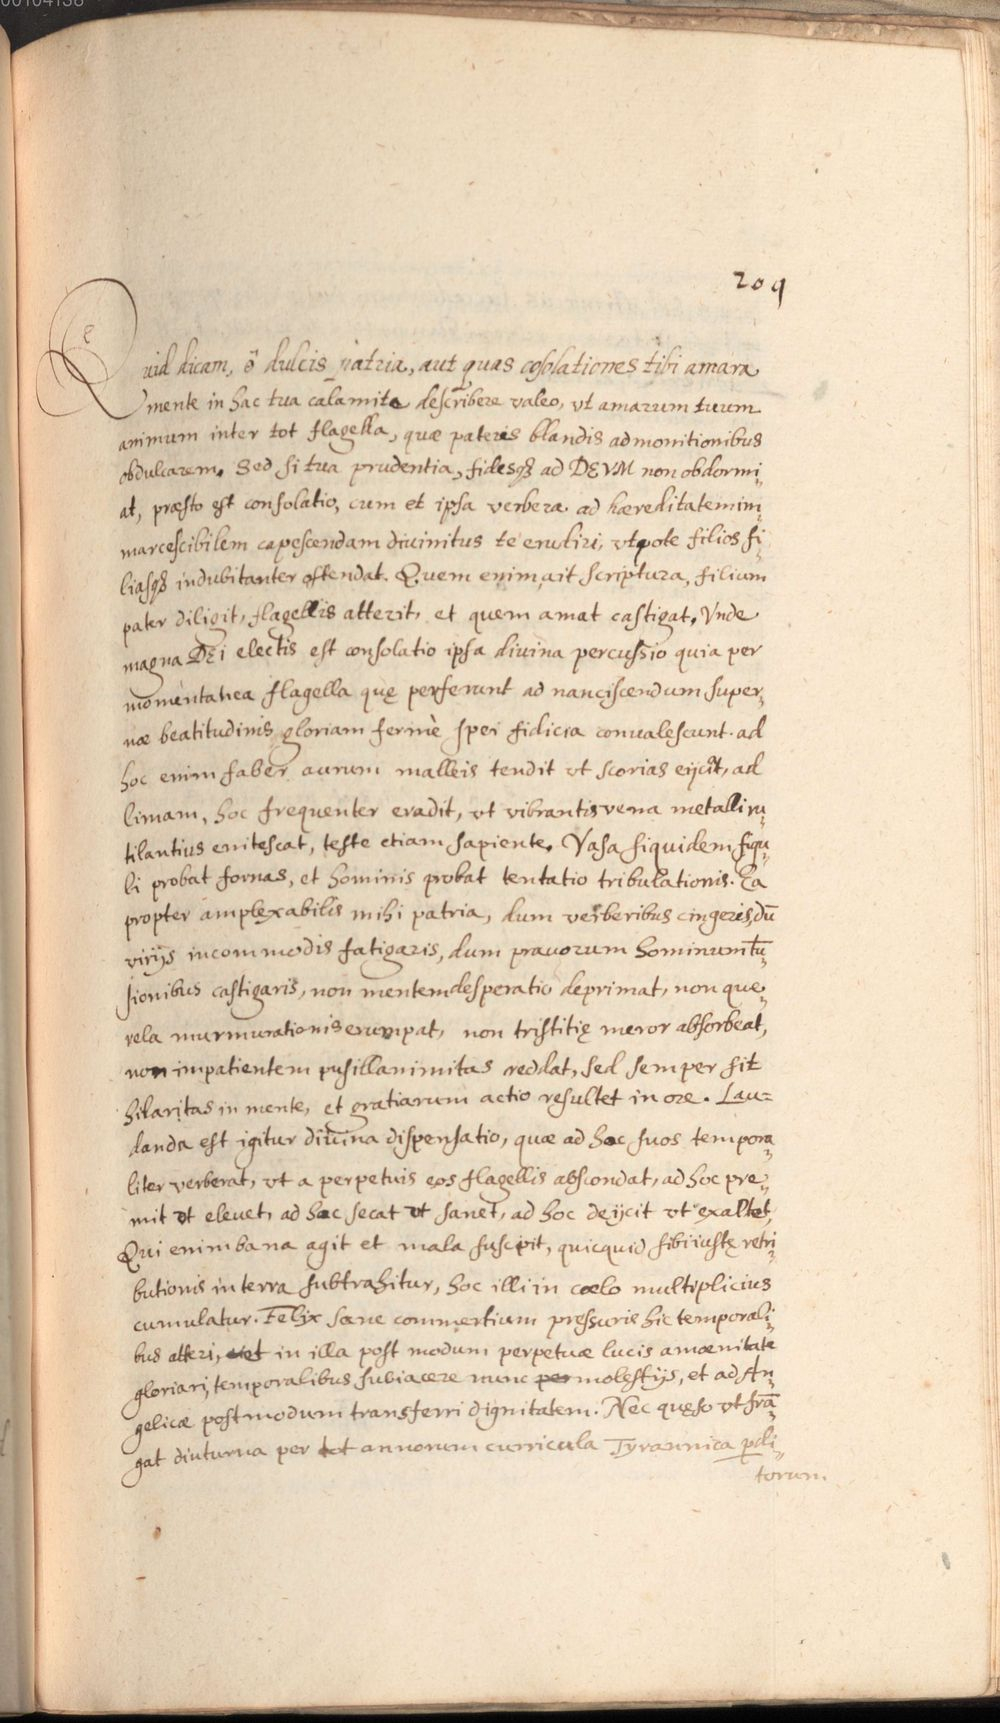 00104138
209
Quid dicam, ô dulcis patria, aut quas cōsolationes tibi amara
mente in hac tua calamitate describere valeo, vt amarum tuum
animum inter tot flagella, quæ pateris blandis admonitionibus
obdulcarem. Sed si tua prudentia, fidesqȝ ad DEVM non obdormi„
at, præsto est consolatio, cum et ipsa verbera ad hæreditatem im„
marcescibilem capescendam diuinitus te erudiri, vtpote filios fi„
liasqȝ indubitanter ostendat. Quem enim ait scriptura, filium
pater diligit, flagellis atterit, et quem amat castigat. Vnde
magna DEi electis est consolatio ipsa diuina percussio quia per
momentanea flagella quę perferunt ad nanciscendum super„
næ beatitudinis gloriam fermè spei fiducia conualescunt. ad
hoc enim faber aurum malleis tendit vt scorias eijciat, ad
limam, hoc frequenter eradit, vt vibrantis vena metalli ru„
tilantius enitescat, teste etiam sapiente. Vasa siquidem figu„
li probat fornas, et hominis probat tentatio tribulationis. Ea
propter amplexabilis mihi patria, dum verberibus cingeris, dū
vitijs incommodis fatigaris, dum prauorum hominum tū„
sionibus castigaris, non mentem desperatio deprimat, non que„
rela murmurationis erumpat, non tristitię meror absorbeat,
non impatientem pusillanimitas reddat, sed semper sit
hilaritas in mente, et gratiarum actio resultet in ore. Lau=
danda est igitur diuina dispensatio, quæ ad hoc suos tempora„
liter verberat, vt a perpetuis eos flagellis abscondat, ad hoc pre„
mit vt eleuet, ad hoc secat vt sanet, ad hoc deijcit vt exaltet,
Qui enim bana agit et mala suscipit, quicquid sibi iustę retri„
butionis in terra subtrahitur, hoc illi in cœlo multiplicius
cumulatur. Felix sane commertium pressuris hic temporali„
bus atteri, in illa post modum perpetuæ lucis amœnitate
gloriari, temporalibus subiacere nunc molestijs, et ad An„
gelicæ postmodum transferri dignitatem. Nec quęso vt frā„
gat diuturna per tot annorum curricula Tyrannica pdi„
torum